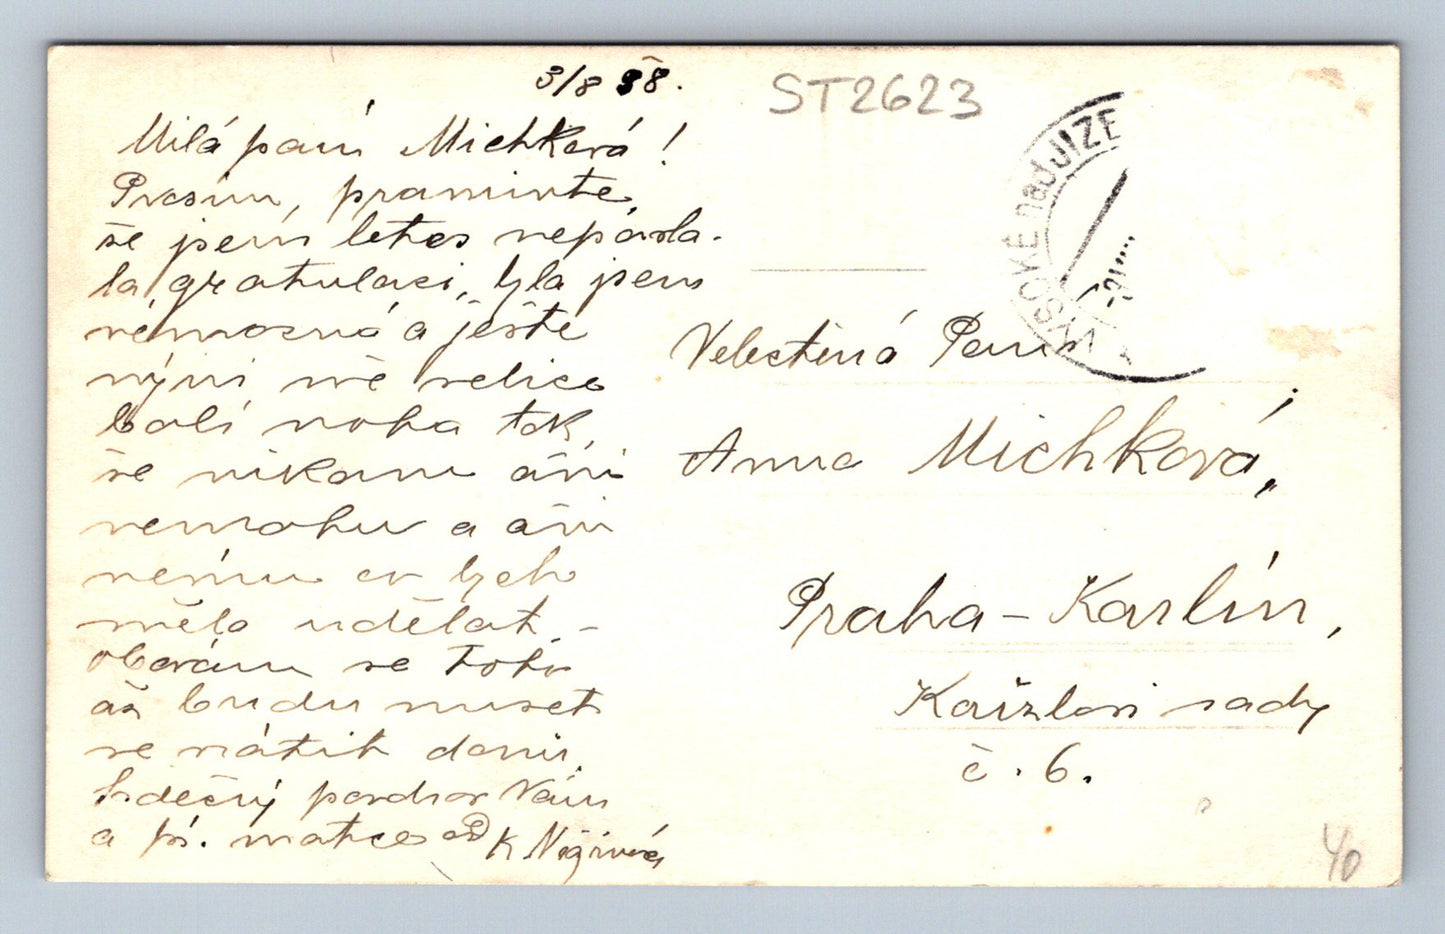 3/8 38.
ST2623
VYSOKÉ nad JIZE
Milá paní Michková!
Prosím, prominte,
že jsem letos neposla-
la gratulaci, byla jsem
nemocná a ještě
nyní mě velice
bolí noha tak,
že nikam ani
nemohu a ani
nevím co bych
měla udělat, -
obávám se toho
až budu muset
se vrátit domů.
Srdečný pozdrav Vám
a sl. matce od K
Velectěná Paní
Anna Michková,
Praha - Karlín,
Kaizlovi sady
č. 6.
40